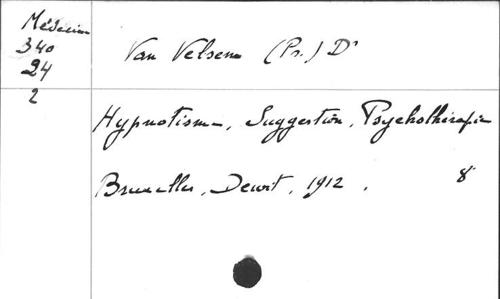 Médecine
340
24
2
Van Velsen (Pr.) Dr
Hypnotisme, Suggestion, Psychothérapie
Bruxelles, Dewit, 1912. 8°